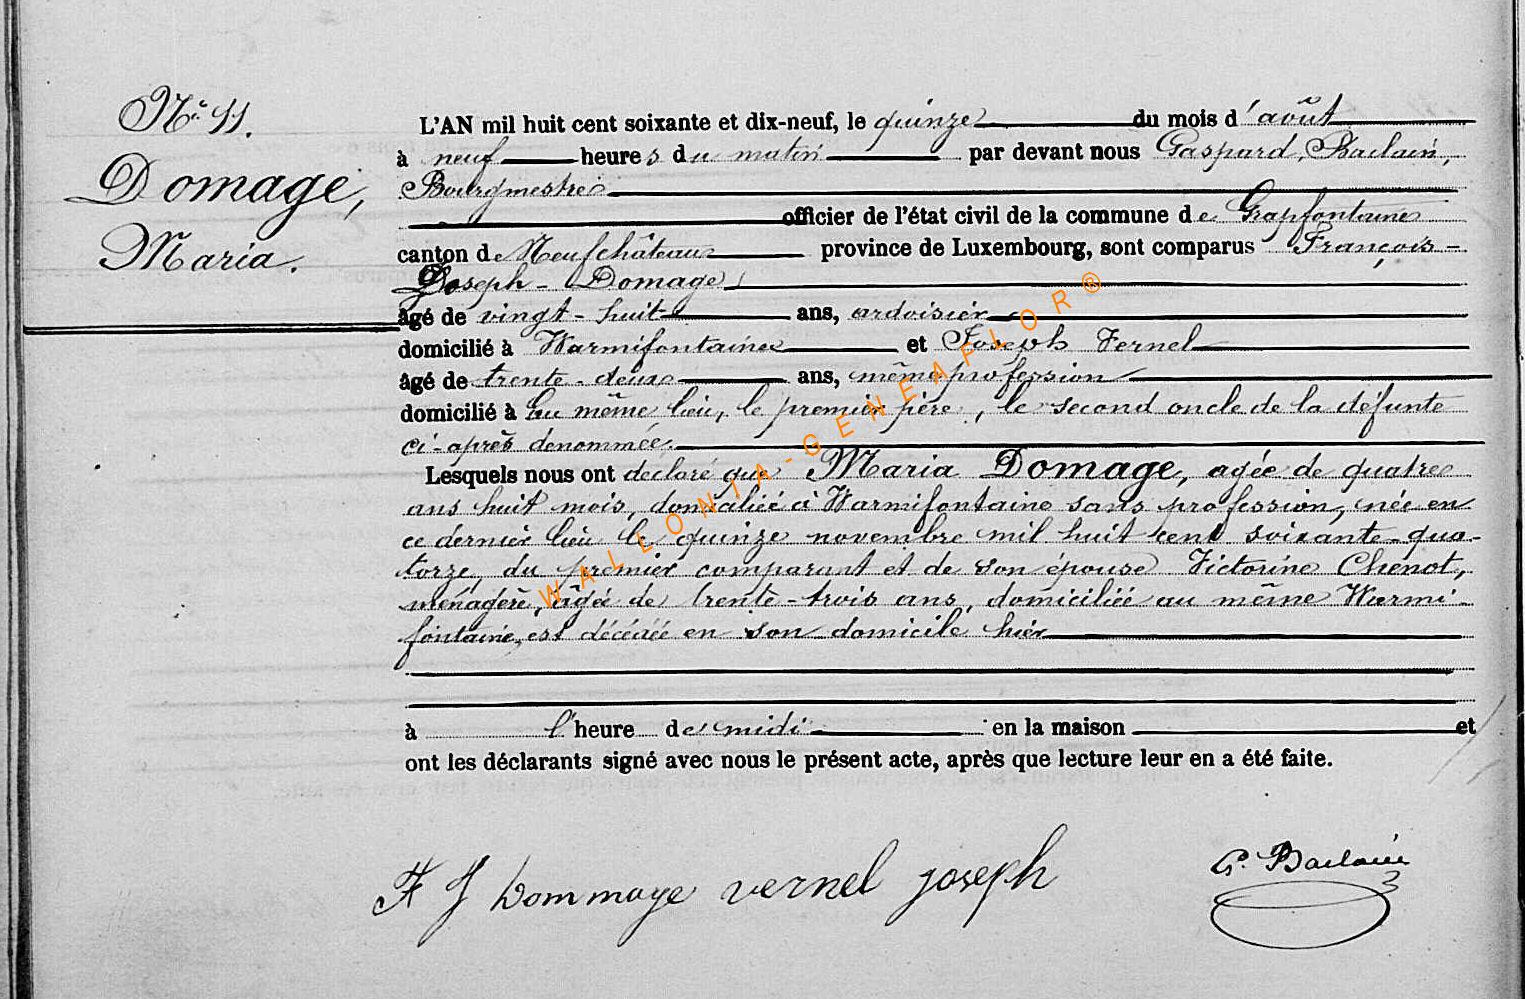 N° 11.
Domage,
Maria.
L'AN mil huit cent soixante et dix-neuf, le quinze du mois d'août
à neuf heures du matin par devant nous Gaspard Baclain,
Bourgmestre
officier de l'état civil de la commune de Grapfontaine
canton de Neufchâteau province de Luxembourg, sont comparus François-
Joseph - Domage
âgé de vingt-huit ans, ardoisier
domicilié à Warmifontaine et Joseph Vernel
âgé de trente-deux ans, même profession
domicilié à au même lieu, le premier père, le second oncle de la défunte
ci-après dénommée.
Lesquels nous ont déclaré que Maria Domage, agée de quatre
ans huit mois, domiciliée à Warmifontaine sans profession, née en
ce dernier lieu le quinze novembre mil huit cent soixante-qua-
torze, du premier comparant et de son épouse Victorine Chenot,
ménagère, agée de trente-trois ans, domiciliée au même Warmi-
fontaine, est décédée en son domicile hier
à l'heure de midi en la maison et
ont les déclarants signé avec nous le présent acte, après que lecture leur en a été faite.
F J Dommage vernel joseph G. Baclain
WALLONIA-GENEAFLOR®